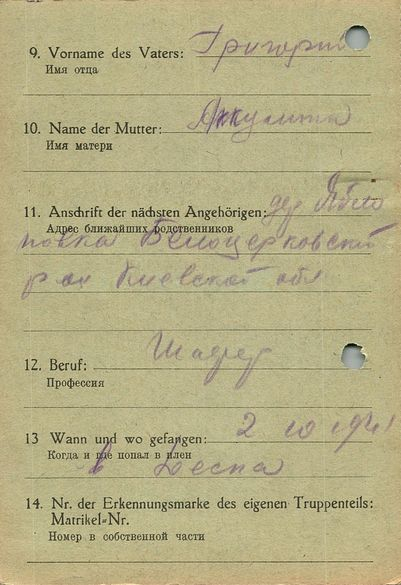 9. Vorname des Vaters: Григорий
Имя отца
10. Name der Mutter: Аккулина
Имя матери
11. Anschrift der nächsten Angehörigen: дер Ябло
Адрес ближайших родственников
новка Белоцерковский
р он Киевской обл
12. Beruf: Шофер
Профессия
13 Wann und wo gefangen: 2 10 1941
Когда и где попал в плен
в Десна
14. Nr. der Erkennungsmarke des eigenen Truppenteils:
Matrikel-Nr.
Номер в собственной части